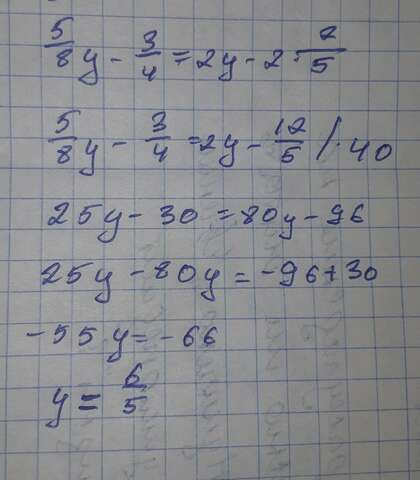 5/8 y - 3/4 = 2y - 2 · 2/5
5/8 y - 3/4 = 2y - 12/5 / · 40
25y - 30 = 80y - 96
25y - 80y = -96 + 30
-55y = -66
y = 6/5